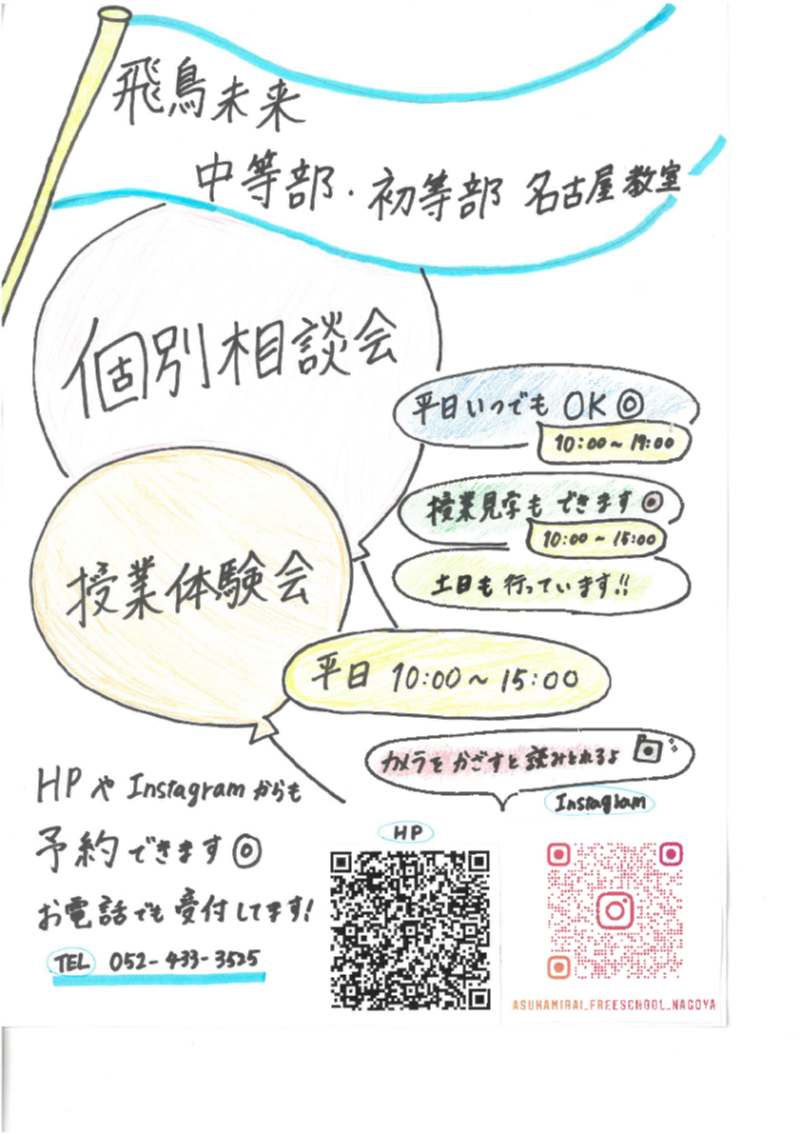 飛鳥未来
中等部・初等部 名古屋教室
個別相談会
平日いつでも OK◎
10:00～19:00
授業見学も できます◎
10:00～15:00
土日も行っています!!
授業体験会
平日 10:00～15:00
カメラを かざすと 読みとれるよ
HPや Instagramからも
予約できます◎
お電話でも 受付してます!
TEL 052-433-3525
HP
Instagram
ASUKAMIRAI_FREESCHOOL_NAGOYA